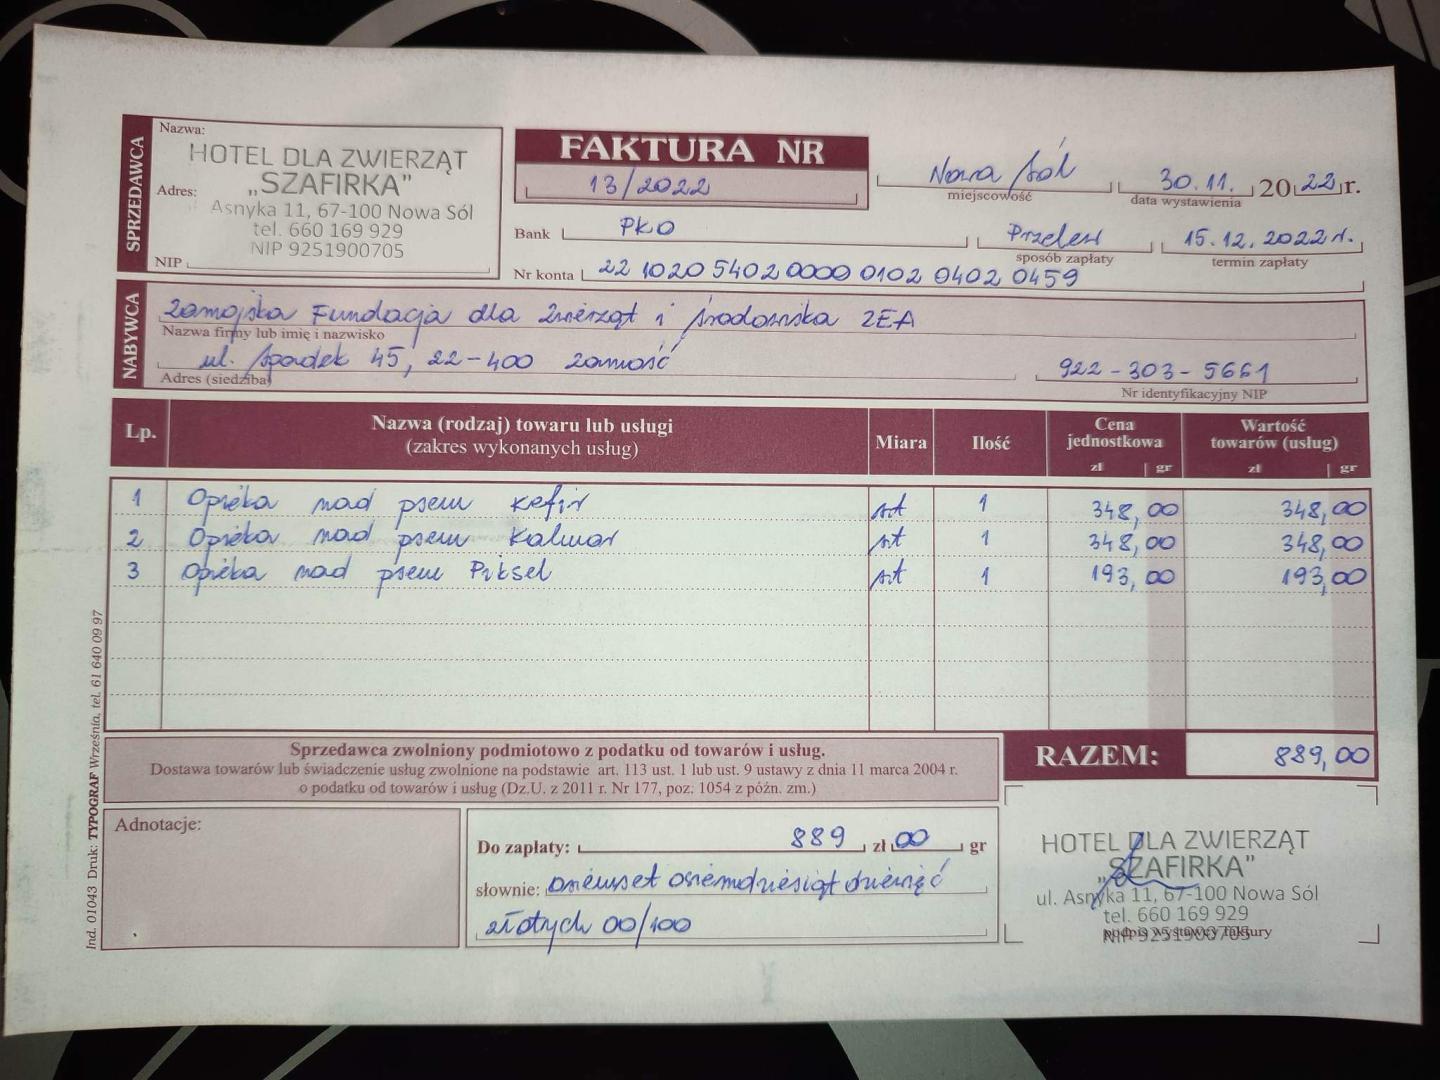 SPRZEDAWCA
Nazwa:
HOTEL DLA ZWIERZĄT
„SZAFIRKA”
Adres:
Asnyka 11, 67-100 Nowa Sól
tel. 660 169 929
NIP 9251900705
NIP
FAKTURA NR
13/2022
Nowa Sól
miejscowość
30.11. 2022r.
data wystawienia
Bank PKO
Przelew
sposób zapłaty
15.12.2022r.
termin zapłaty
Nr konta 22 1020 5402 0000 0102 0402 0459
NABYWCA
Zamojska Fundacja dla Zwierząt i Środowiska ZEA
Nazwa firmy lub imię i nazwisko
ul. Spadek 45, 22-400 Zamość
Adres (siedziba)
922-303-5661
Nr identyfikacyjny NIP
Lp. Nazwa (rodzaj) towaru lub usługi (zakres wykonanych usług) Miara Ilość Cena jednostkowa zł gr Wartość towarów (usług) zł gr
1 Opieka nad psem Kefir szt 1 348,00 348,00
2 Opieka nad psem Kalmar szt 1 348,00 348,00
3 Opieka nad psem Piksel szt 1 193,00 193,00
Sprzedawca zwolniony podmiotowo z podatku od towarów i usług.
Dostawa towarów lub świadczenie usług zwolnione na podstawie art. 113 ust. 1 lub ust. 9 ustawy z dnia 11 marca 2004 r.
o podatku od towarów i usług (Dz.U. z 2011 r. Nr 177, poz. 1054 z późn. zm.)
RAZEM: 889,00
Adnotacje:
Do zapłaty: 889 zł 00 gr
słownie: osiemset osiemdziesiąt dziewięć
złotych 00/100
HOTEL DLA ZWIERZĄT
„SZAFIRKA”
ul. Asnyka 11, 67-100 Nowa Sól
tel. 660 169 929
NIP 9251900705
podpis wystawcy faktury
Ind. 01043 Druk: TYPOGRAF Września, tel. 61 640 09 97